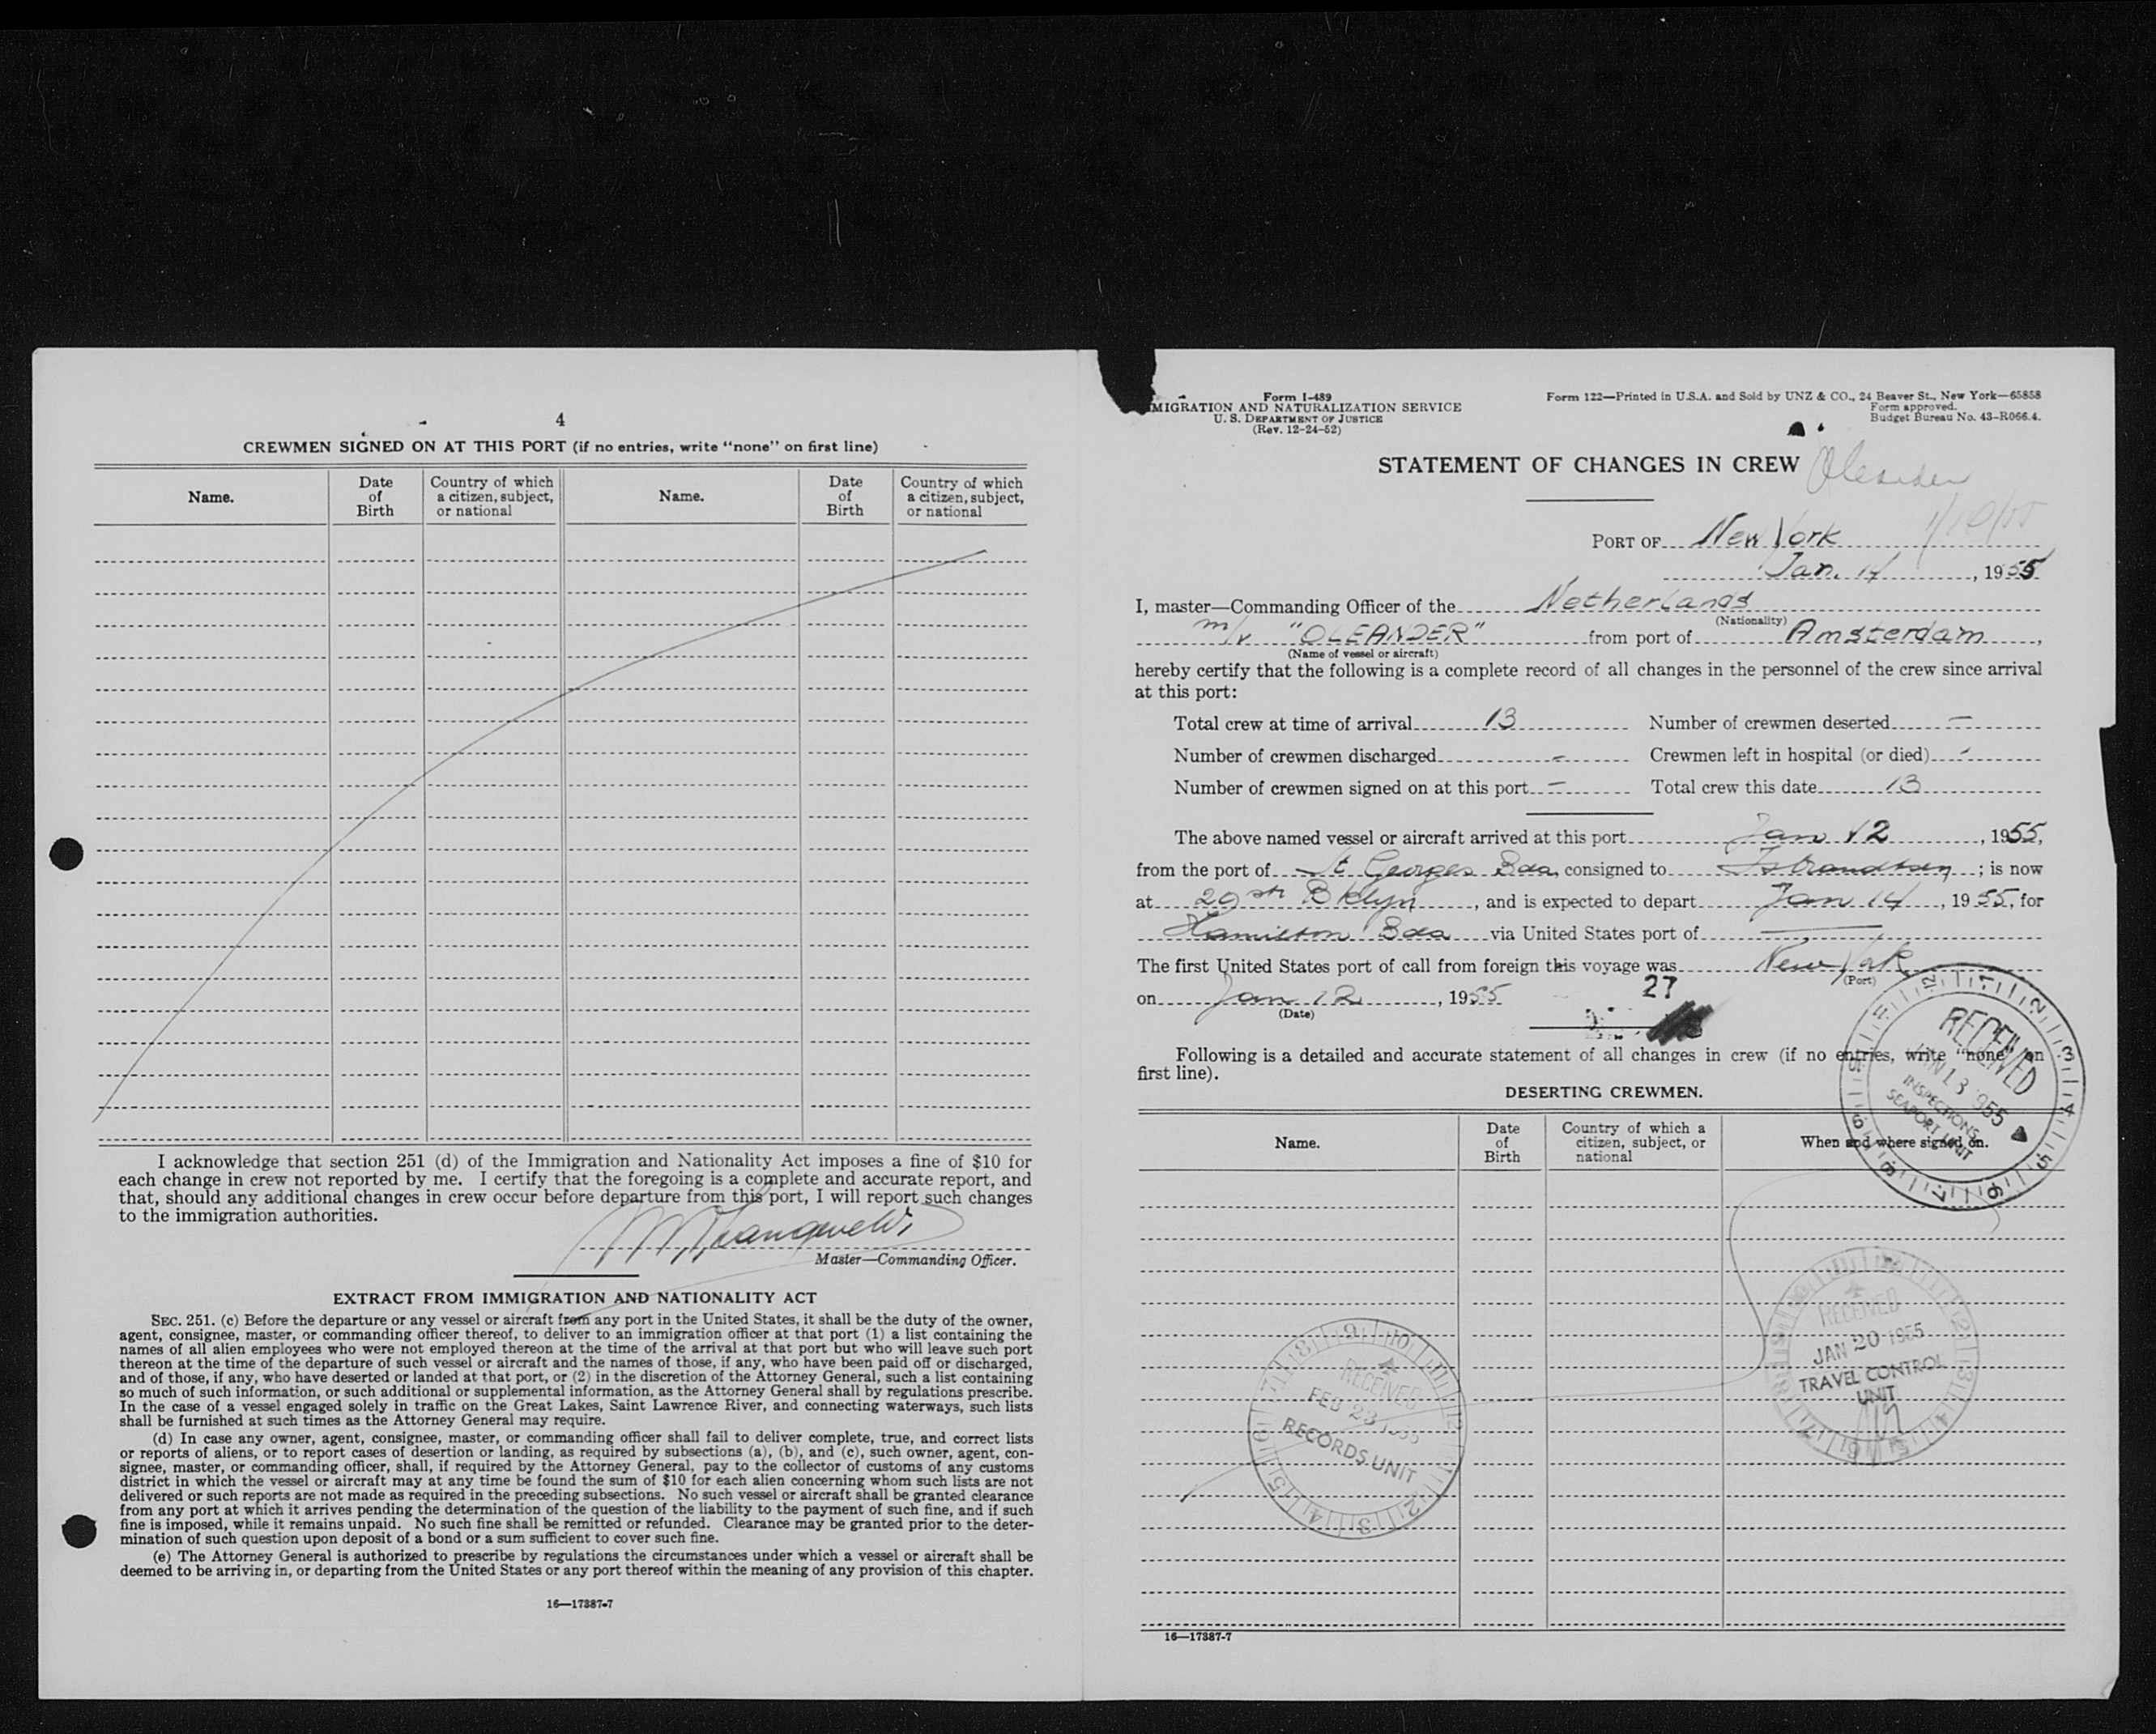 4
CREWMEN SIGNED ON AT THIS PORT (if no entries, write "none" on first line)
Name.
Date of Birth
Country of which a citizen, subject, or national
Name.
Date of Birth
Country of which a citizen, subject, or national
I acknowledge that section 251 (d) of the Immigration and Nationality Act imposes a fine of $10 for
each change in crew not reported by me. I certify that the foregoing is a complete and accurate report, and
that, should any additional changes in crew occur before departure from this port, I will report such changes
to the immigration authorities.
Master—Commanding Officer.
EXTRACT FROM IMMIGRATION AND NATIONALITY ACT
SEC. 251. (c) Before the departure or any vessel or aircraft from any port in the United States, it shall be the duty of the owner,
agent, consignee, master, or commanding officer thereof, to deliver to an immigration officer at that port (1) a list containing the
names of all alien employees who were not employed thereon at the time of the arrival at that port but who will leave such port
thereon at the time of the departure of such vessel or aircraft and the names of those, if any, who have been paid off or discharged,
and of those, if any, who have deserted or landed at that port, or (2) in the discretion of the Attorney General, such a list containing
so much of such information, or such additional or supplemental information, as the Attorney General shall by regulations prescribe.
In the case of a vessel engaged solely in traffic on the Great Lakes, Saint Lawrence River, and connecting waterways, such lists
shall be furnished at such times as the Attorney General may require.
(d) In case any owner, agent, consignee, master, or commanding officer shall fail to deliver complete, true, and correct lists
or reports of aliens, or to report cases of desertion or landing, as required by subsections (a), (b), and (c), such owner, agent, con-
signee, master, or commanding officer, shall, if required by the Attorney General, pay to the collector of customs of any customs
district in which the vessel or aircraft may at any time be found the sum of $10 for each alien concerning whom such lists are not
delivered or such reports are not made as required in the preceding subsections. No such vessel or aircraft shall be granted clearance
from any port at which it arrives pending the determination of the question of the liability to the payment of such fine, and if such
fine is imposed, while it remains unpaid. No such fine shall be remitted or refunded. Clearance may be granted prior to the deter-
mination of such question upon deposit of a bond or a sum sufficient to cover such fine.
(e) The Attorney General is authorized to prescribe by regulations the circumstances under which a vessel or aircraft shall be
deemed to be arriving in, or departing from the United States or any port thereof within the meaning of any provision of this chapter.
16—17387-7
Form I-489
MIGRATION AND NATURALIZATION SERVICE
U. S. DEPARTMENT OF JUSTICE
(Rev. 12-24-52)
Form 122—Printed in U.S.A. and Sold by UNZ & CO., 24 Beaver St., New York—65858
Form approved.
Budget Bureau No. 43-R066.4.
STATEMENT OF CHANGES IN CREW Oleander
PORT OF New York
Jan. 14, 1955
I, master—Commanding Officer of the Netherlands
(Nationality)
m/v "OLEANDER" from port of Amsterdam,
(Name of vessel or aircraft)
hereby certify that the following is a complete record of all changes in the personnel of the crew since arrival
at this port:
Total crew at time of arrival 13 Number of crewmen deserted —
Number of crewmen discharged - Crewmen left in hospital (or died) -
Number of crewmen signed on at this port — Total crew this date 13
The above named vessel or aircraft arrived at this port Jan 12, 1955,
from the port of St Georges Bda, consigned to ; is now
at 29 Bklyn, and is expected to depart Jan 14, 1955, for
Hamilton Bda via United States port of
The first United States port of call from foreign this voyage was New York
(Port)
on Jan 12, 1955
(Date)
27
Following is a detailed and accurate statement of all changes in crew (if no entries, write "none" on
first line).
DESERTING CREWMEN.
Name.
Date of Birth
Country of which a citizen, subject, or national
When and where signed on.
RECEIVED
JAN 13 1955
INSPECTIONS
SEAPORT UNIT
RECEIVED
JAN 20 1955
TRAVEL CONTROL
UNIT
RECEIVED
FEB 23 1955
RECORDS UNIT
16—17387-7